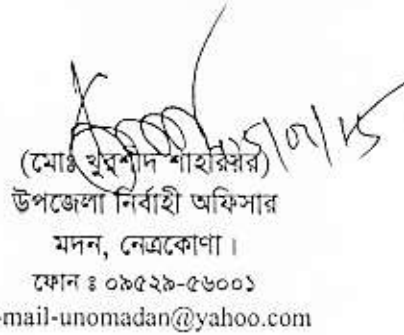 (মোঃ খুরশীদ শাহরিয়ার)
উপজেলা নির্বাহী অফিসার
মদন, নেত্রকোণা।
ফোন ঃ ০৯৫২৯-৫৬০০১
-mail-unomadan@yahoo.com